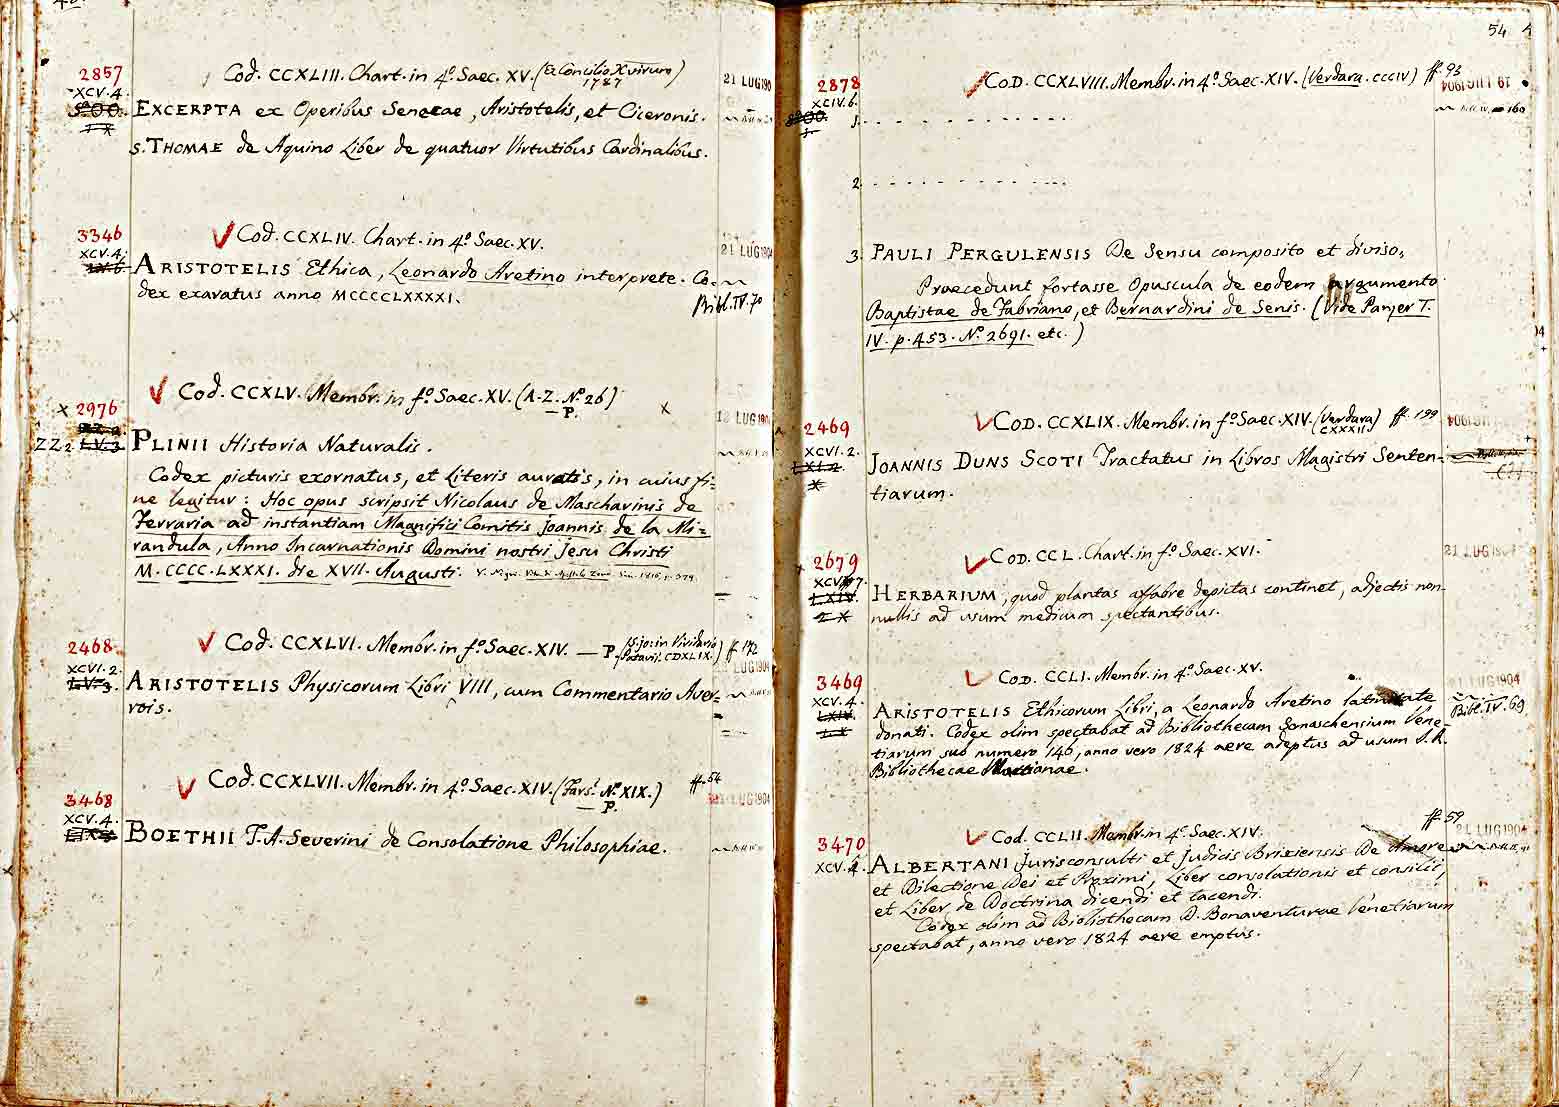 2857
XCV.4.
Cod. CCXLIII. Chart. in 4º. Saec. XV. (Ex Concilio X virum)
1787
21 LUG 190
EXCERPTA ex Operibus Senecae, Aristotelis, et Ciceronis.
S. THOMAE de Aquino Liber de quatuor Virtutibus Cardinalibus.
3346
XCV.4.
Cod. CCXLIV. Chart. in 4º. Saec. XV.
21 LUG 1904
ARISTOTELIS Ethica, Leonardo Aretino interprete. Co-
dex exaratus anno MCCCCLXXXXI.
Bibl. IV. 70
X 2976
ZZ2
Cod. CCXLV. Membr. in fº. Saec. XV. (A-Z. Nº. 26)
P.
X
18 LUG 190
PLINII Historia Naturalis.
Codex picturis exornatus, et Literis auratis, in cuius fi=
ne legitur: Hoc opus scripsit Nicolaus de Mascharinis de
Ferraria ad instantiam Magnifici Comitis Joannis de la Mi=
randula, Anno Incarnationis Domini nostri Jesu Christi
M.CCCC.LXXXI. die XVII. Augusti.
2468
XCVI.2.
Cod. CCXLVI. Membr. in fº. Saec. XIV. — P. (S. Jo: in Viridario
Patavii. CDXLIX.) ff. 172
LUG 1904
ARISTOTELIS Physicorum Libri VIII, cum Commentario Aver-
rois.
3468
XCV.4.
Cod. CCXLVII. Membr. in 4º. Saec. XIV. (Fars. Nº. XIX.)
P.
ff. 54
LUG 1904
BOETHII T. A. Severini de Consolatione Philosophiae.
54
2878
XCIV.6.
COD. CCXLVIII. Membr. in 4º. Saec. XIV. (Verdara. CCCIV) ff. 93
19 LUG 1904
160
1. . . . . . . . . . . . . . . .
2. . . . . . . . . . . . . . . .
3. PAULI PERGULENSIS De Sensu composito et diviso,
Praecedunt fortasse Opuscula de eodem argumento
Baptistae de Fabriano, et Bernardini de Senis. (Vide Panzer T.
IV. p. 453. Nº. 2691. etc.)
2469
XCVI.2.
COD. CCXLIX. Membr. in fº. Saec. XIV. (Verdara) ff. 199
CXXXII
LUG 1904
JOANNIS DUNS SCOTI Tractatus in Libros Magistri Senten-
tiarum.
2679
COD. CCL. Chart. in fº. Saec. XVI.
21 LUG 1904
HERBARIUM, quod plantas affabre depictas continet, adjectis non-
nullis ad usum medicum spectantibus.
3469
XCV.4.
COD. CCLI. Membr. in 4º. Saec. XV.
LUG 1904
ARISTOTELIS Ethicorum Libri, a Leonardo Aretino latinitate
Bibl. IV. 69
donati. Codex olim spectabat ad Bibliothecam Sonaschensium Vene-
tiarum sub numero 146, anno vero 1824 aere adeptus ad usum S. R.
Bibliothecae Marcianae.
3470
XCV.4.
Cod. CCLII. Membr. in 4º. Saec. XIV.
ff. 59
21 LUG 1904
ALBERTANI Jurisconsulti et Judicis Brixiensis De Amore
et Dilectione Dei et Proximi, Liber consolationis et consilii,
et Liber de Doctrina dicendi et tacendi.
Codex olim ad Bibliothecam D. Bonaventurae Venetiarum
spectabat, anno vero 1824 aere emptus.